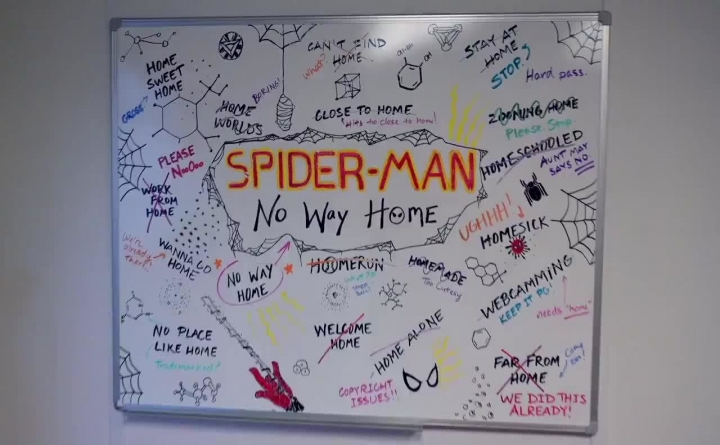 HOME
SWEET
HOME
GROSS?
HOME
WORLDS
BORING!
CAN'T FIND
HOME
What?
CLOSE TO HOME
Hits to close to home!
STAY AT
HOME
STOP!
Hard pass.
ZOOMING HOME
Please. Stop.
HOMESCHOOLED
AUNT MAY
SAYS NO
PLEASE
NoOOoo
WORK
FROM
HOME
SPIDER-MAN
No Way Home
UGHHH!
HOMESICK
We're
already
there!
WANNA GO
HOME
NO WAY
HOME
HOOMERUN
HOMEMADE
Too cutesy
WEBCAMMING
KEEP IT PG
needs "home"
NO PLACE
LIKE HOME
Trademarked!
WELCOME
HOME
HOME ALONE
COPYRIGHT
ISSUES!!
FAR FROM
HOME
Come
on!
WE DID THIS
ALREADY!